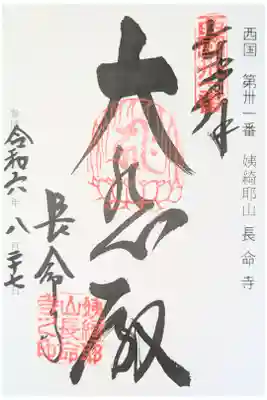 西国 第卅一番 姨綺耶山 長命寺
奉拝
大悲殿
長命寺
令和六年 八月二十七日
姨綺耶
山長命
寺之印